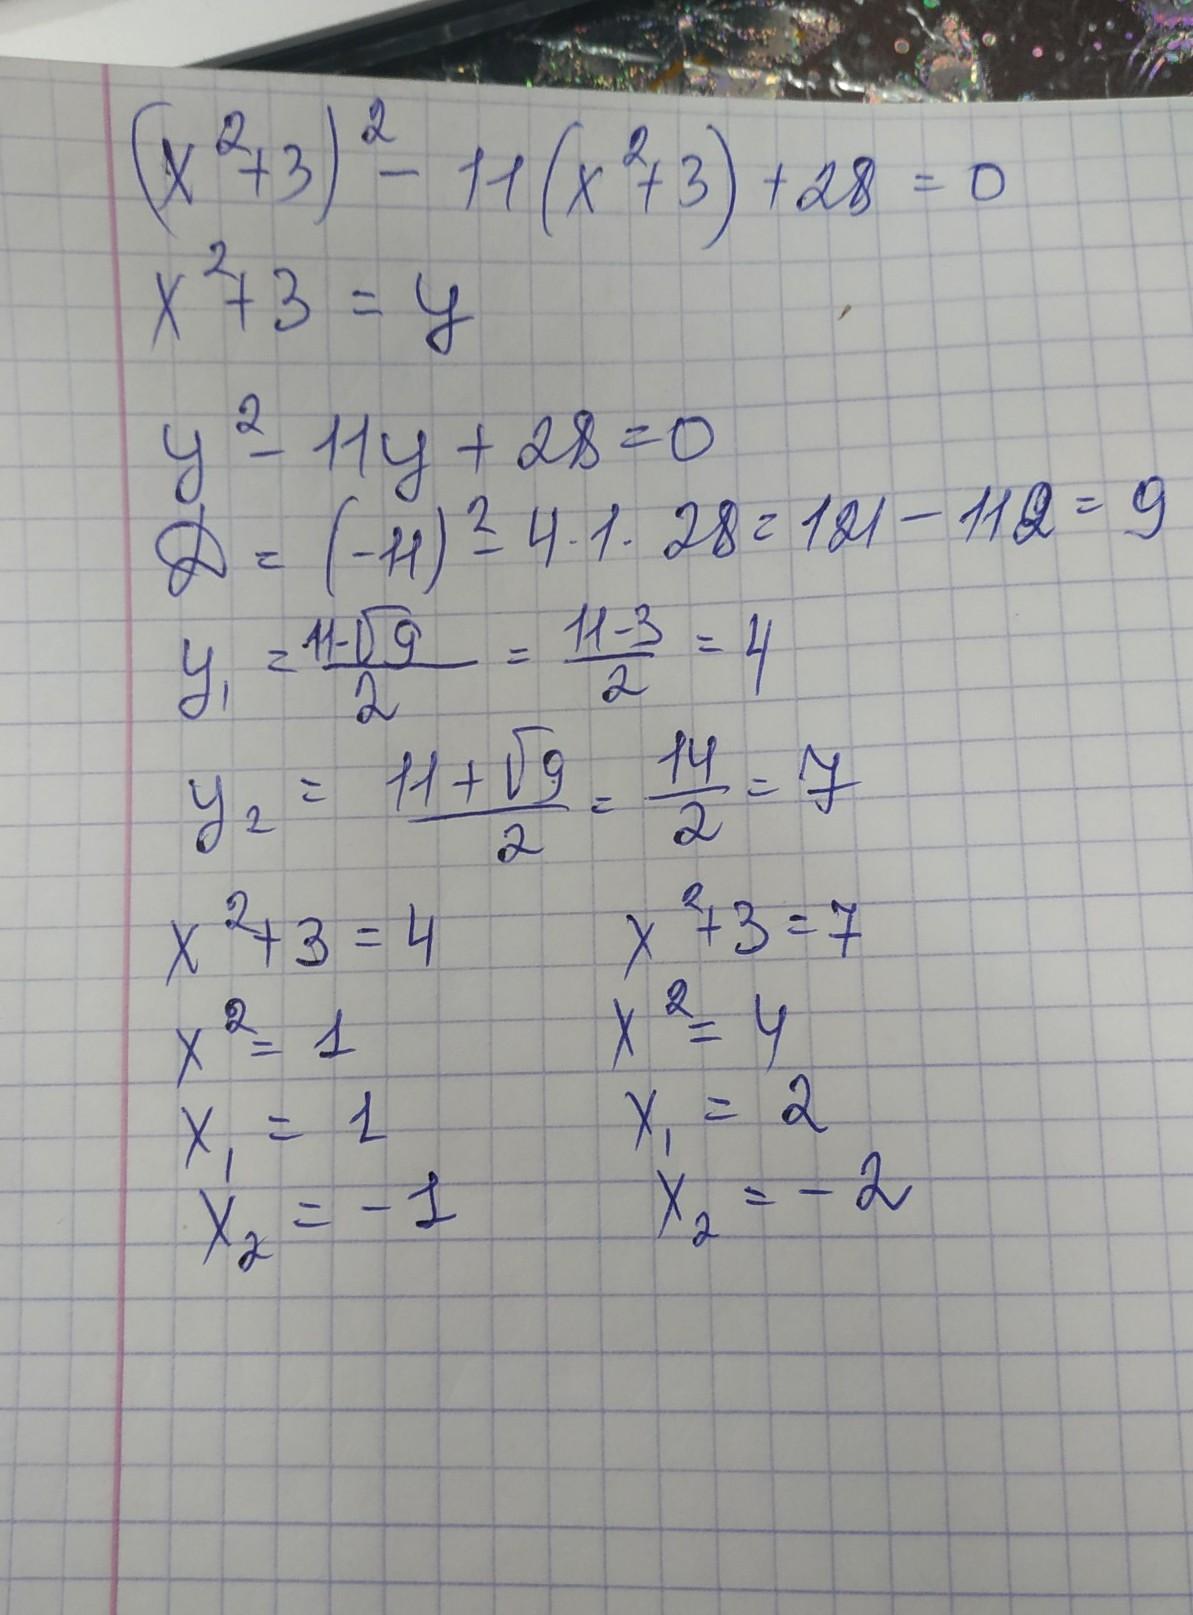 (x²+3)² - 11(x²+3) + 28 = 0
x²+3 = y
y² - 11y + 28 = 0
D = (-11)² - 4·1·28 = 121 - 112 = 9
y₁ = (11-√9)/2 = (11-3)/2 = 4
y₂ = (11+√9)/2 = 14/2 = 7
x²+3 = 4 x²+3 = 7
x² = 1 x² = 4
x₁ = 1 x₁ = 2
x₂ = -1 x₂ = -2